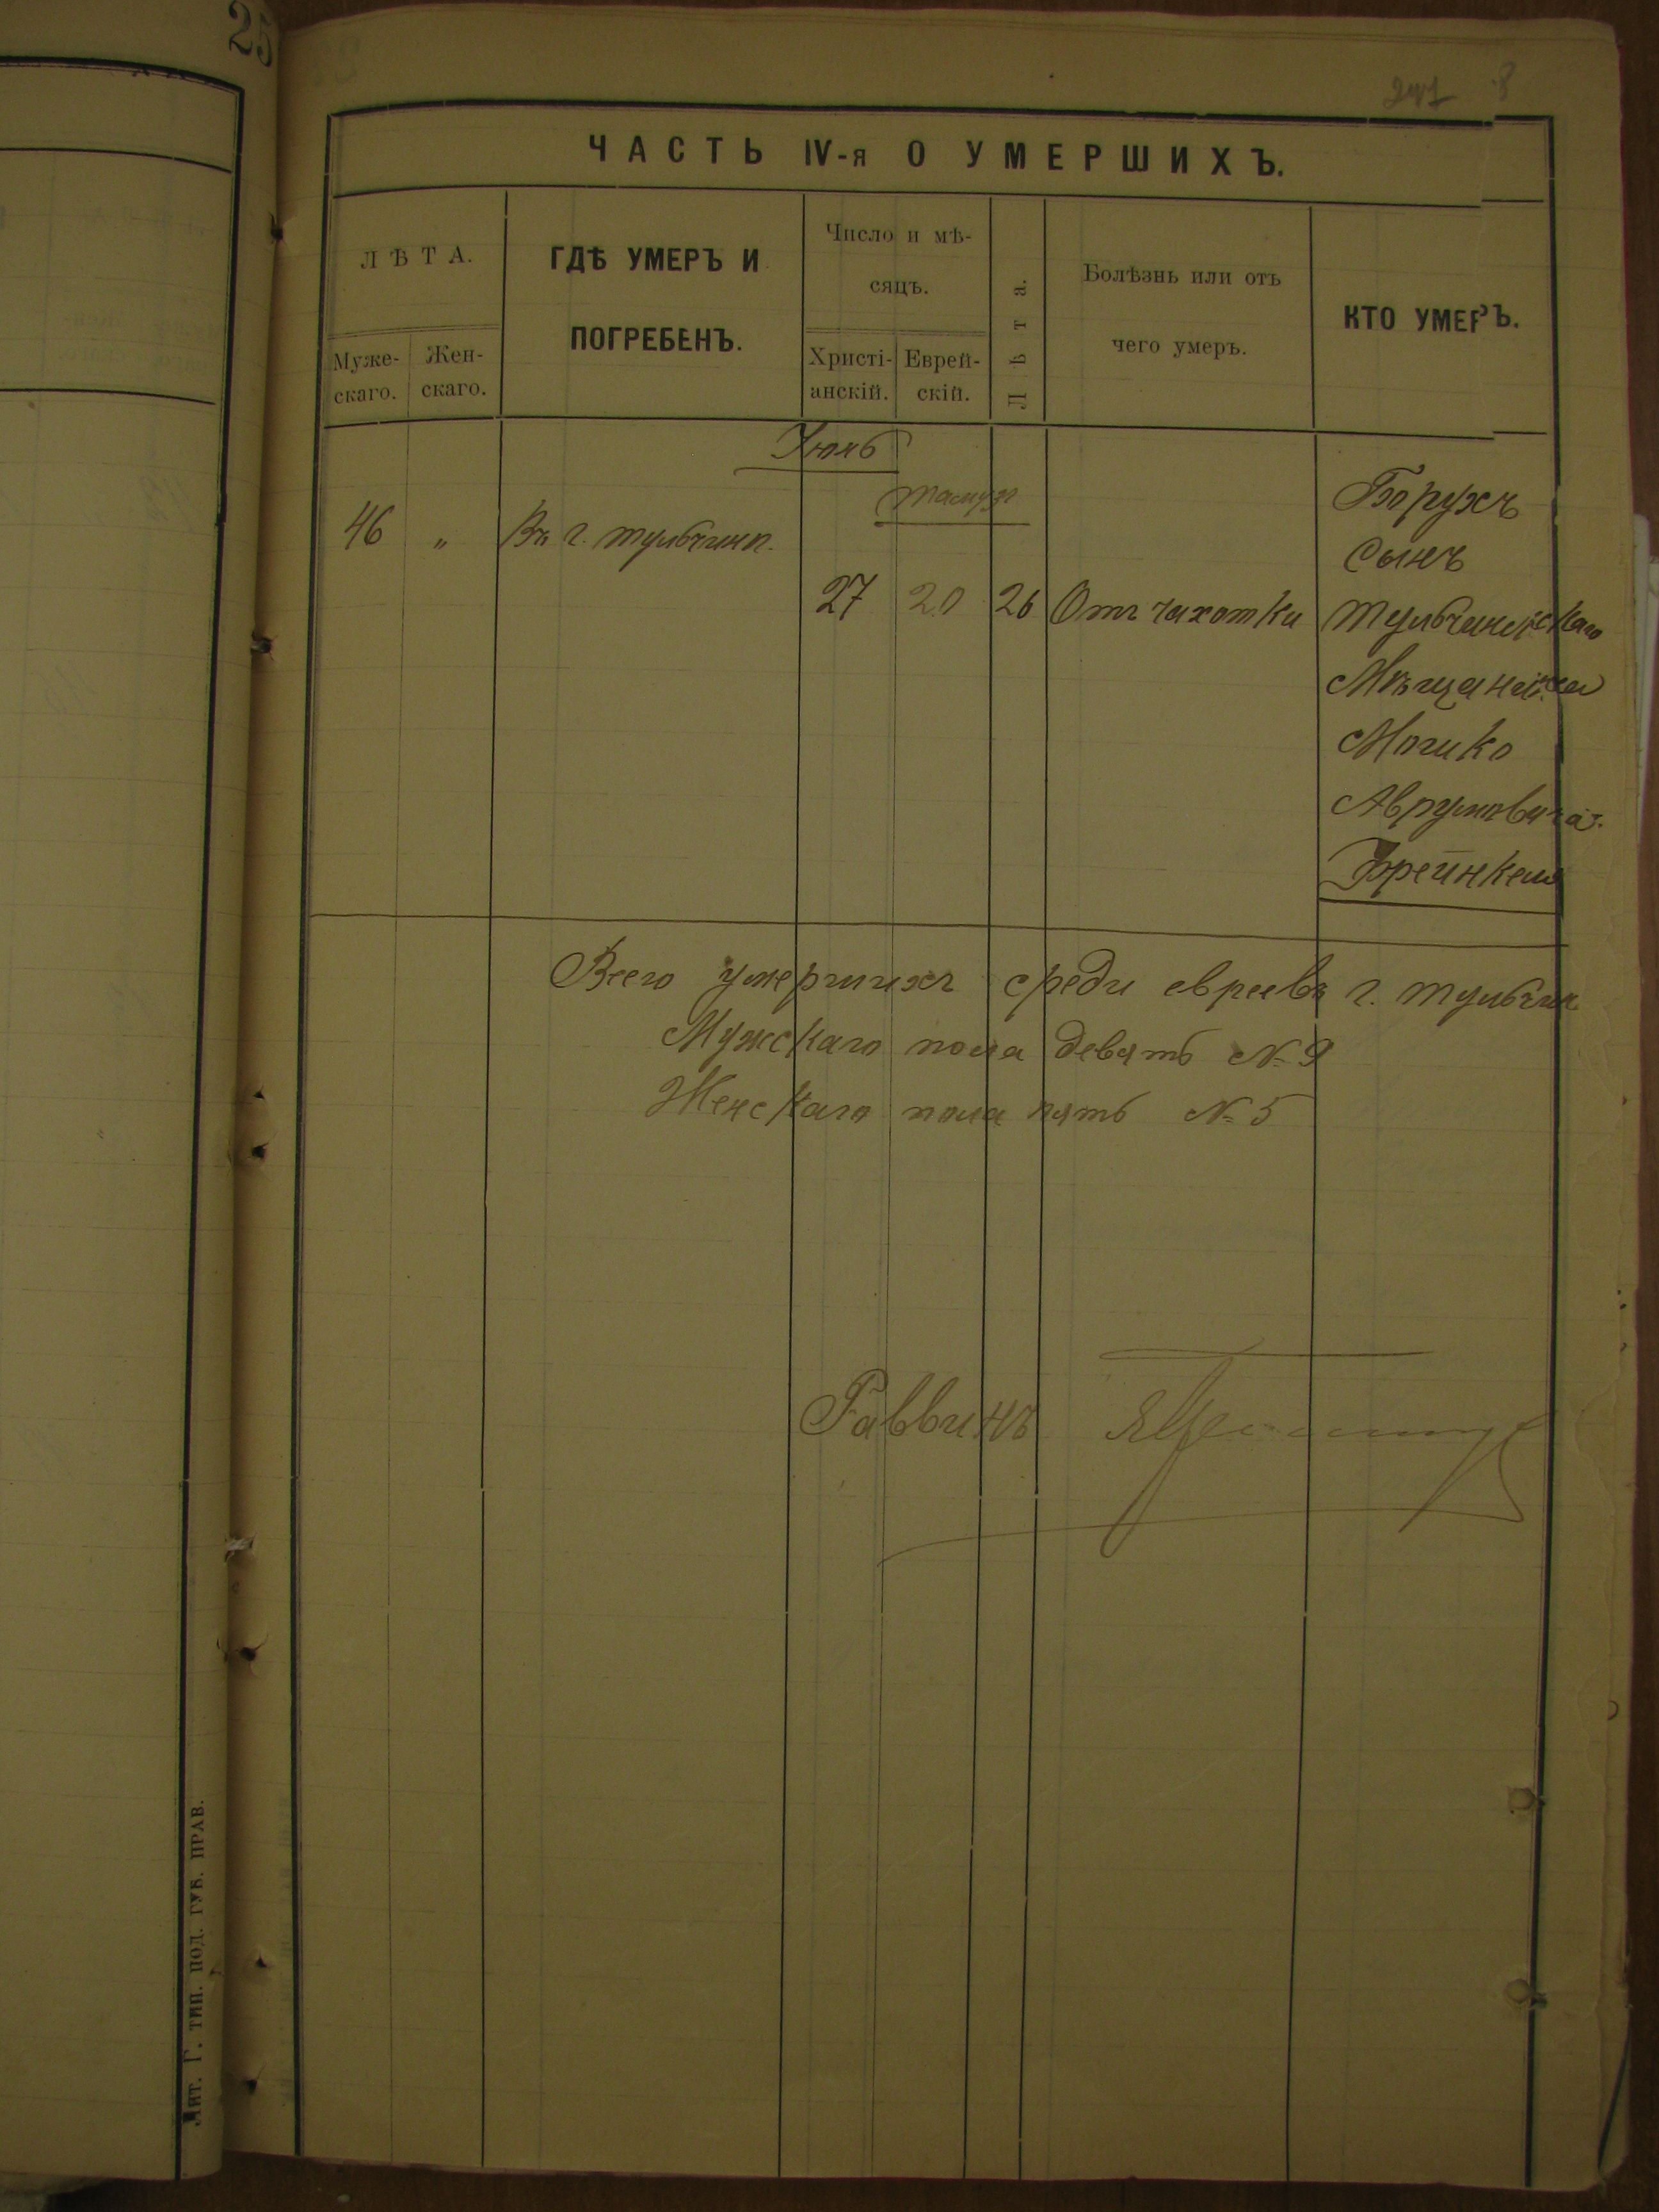 25
ЧАСТЬ IV-я О УМЕРШИХЪ.
ЛѢТА.
Муже-
скаго.
Жен-
скаго.
ГДѢ УМЕРЪ И
ПОГРЕБЕНЪ.
Число и мѣ-
сяцъ.
Христі-
анскій.
Еврей-
скій.
Лѣта.
Болѣзнь или отъ
чего умеръ.
КТО УМЕРЪ.
Іюль
Тамузъ
46 „ Въ г. Тульчинѣ.
27 20 26 Отъ чахотки
Борухъ
сынъ
Тульчинскаго
Мѣщанина
Мошко
Аврумовича
Френкеля
Всего умершихъ среди евреевъ г. Тульчин
Мужскаго пола девять № 9
Женскаго пола пять № 5
Раввинъ
Лит. Г. тип. под. губ. прав.